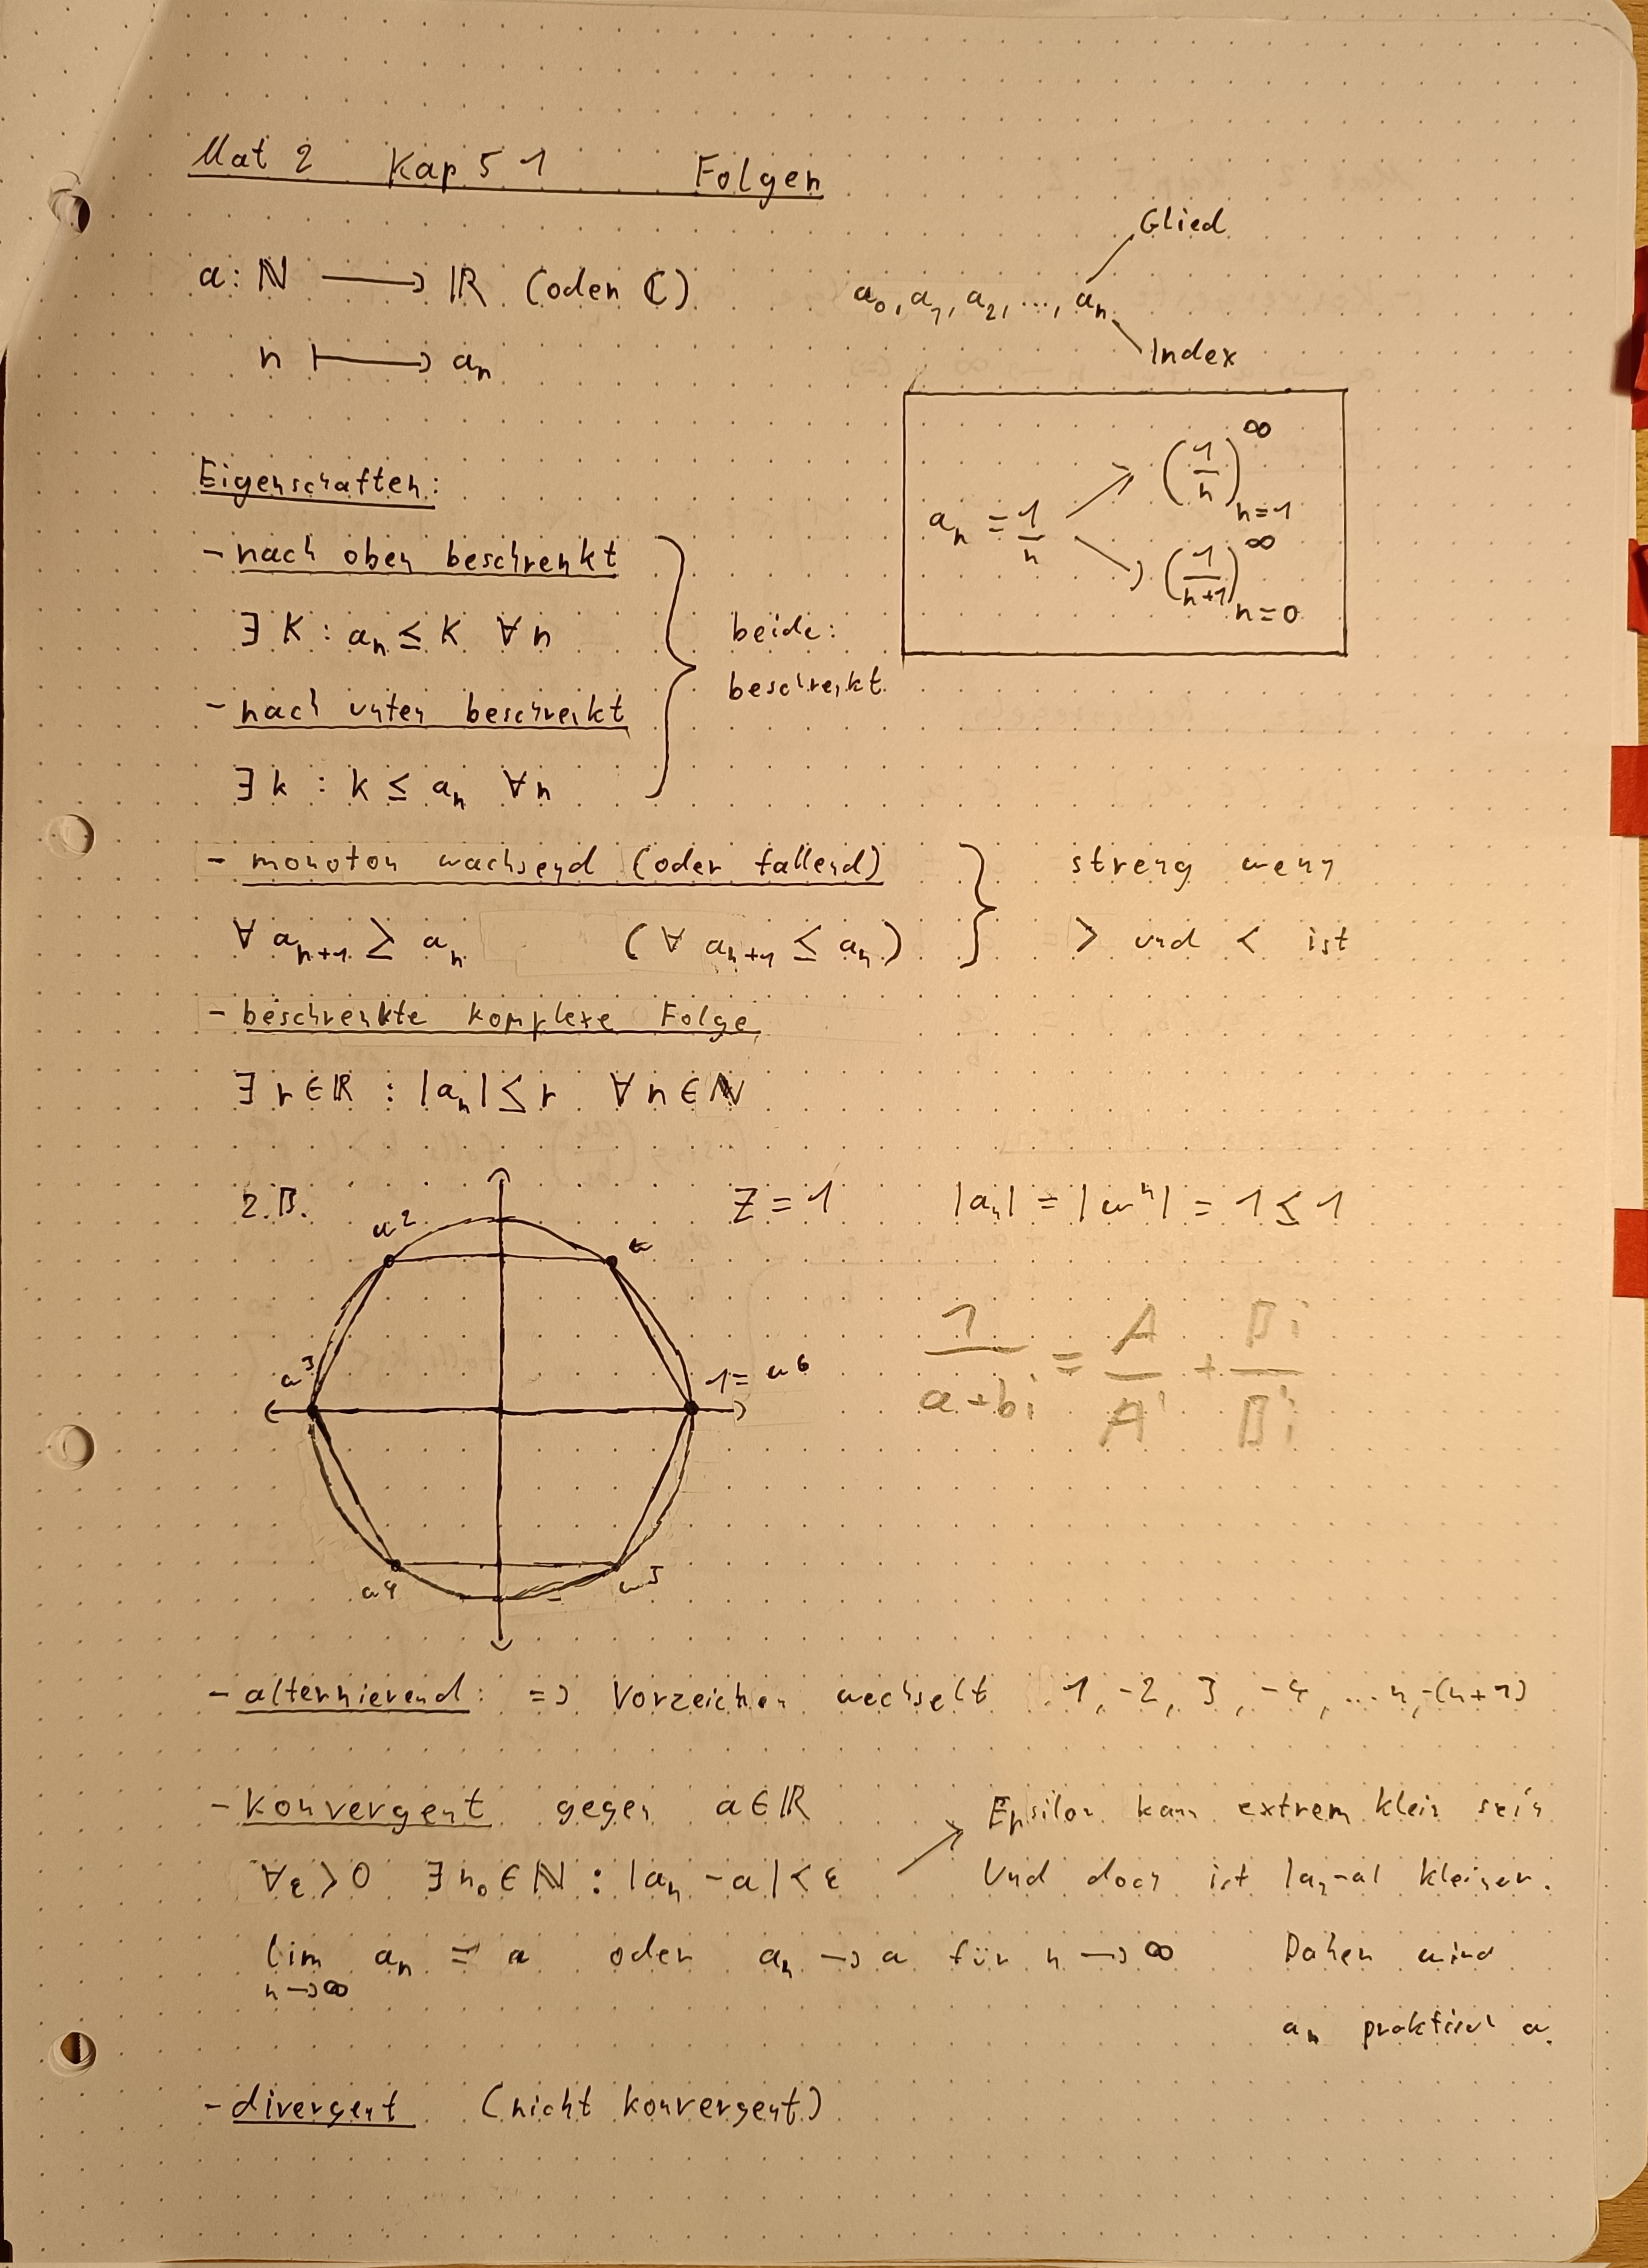 Mat 2 Kap 5 1 Folgen
a: ℕ ⟶ ℝ (oder ℂ)
n ⟼ aₙ
Glied
a₀, a₁, a₂, ..., aₙ
Index
aₙ = 1/n
(1/n)^∞ n=1
(1/(n+1))^∞ n=0
Eigenschaften:
- nach oben beschrenkt
∃ K : aₙ ≤ K ∀n
- nach unten beschrenkt
∃ k : k ≤ aₙ ∀n
beide:
beschrenkt
- monoton wachsend (oder fallend)
∀ aₙ₊₁ ≥ aₙ (∀ aₙ₊₁ ≤ aₙ)
streng wenn
> und < ist
- beschrenkte komplexe Folge
∃ r∈ℝ : |aₙ| ≤ r ∀n∈ℕ
z.B.
Z = 1 |aₙ| = |wⁿ| = 1 ≤ 1
a²
a³
1 = a⁶
a⁴
a⁵
1/(a+bi) = A/A' + Bi/Bi
- alternierend: => Vorzeichen wechselt 1, -2, 3, -4, ... n, -(n+1)
- konvergent gegen a∈ℝ
∀ε>0 ∃n₀∈ℕ : |aₙ - a| < ε
Epsilon kann extrem klein sein
Und doch ist |aₙ-a| kleiner.
lim n→∞ aₙ = a oder aₙ → a für n → ∞
Daher wird
aₙ praktisch a.
- divergent (nicht konvergent)